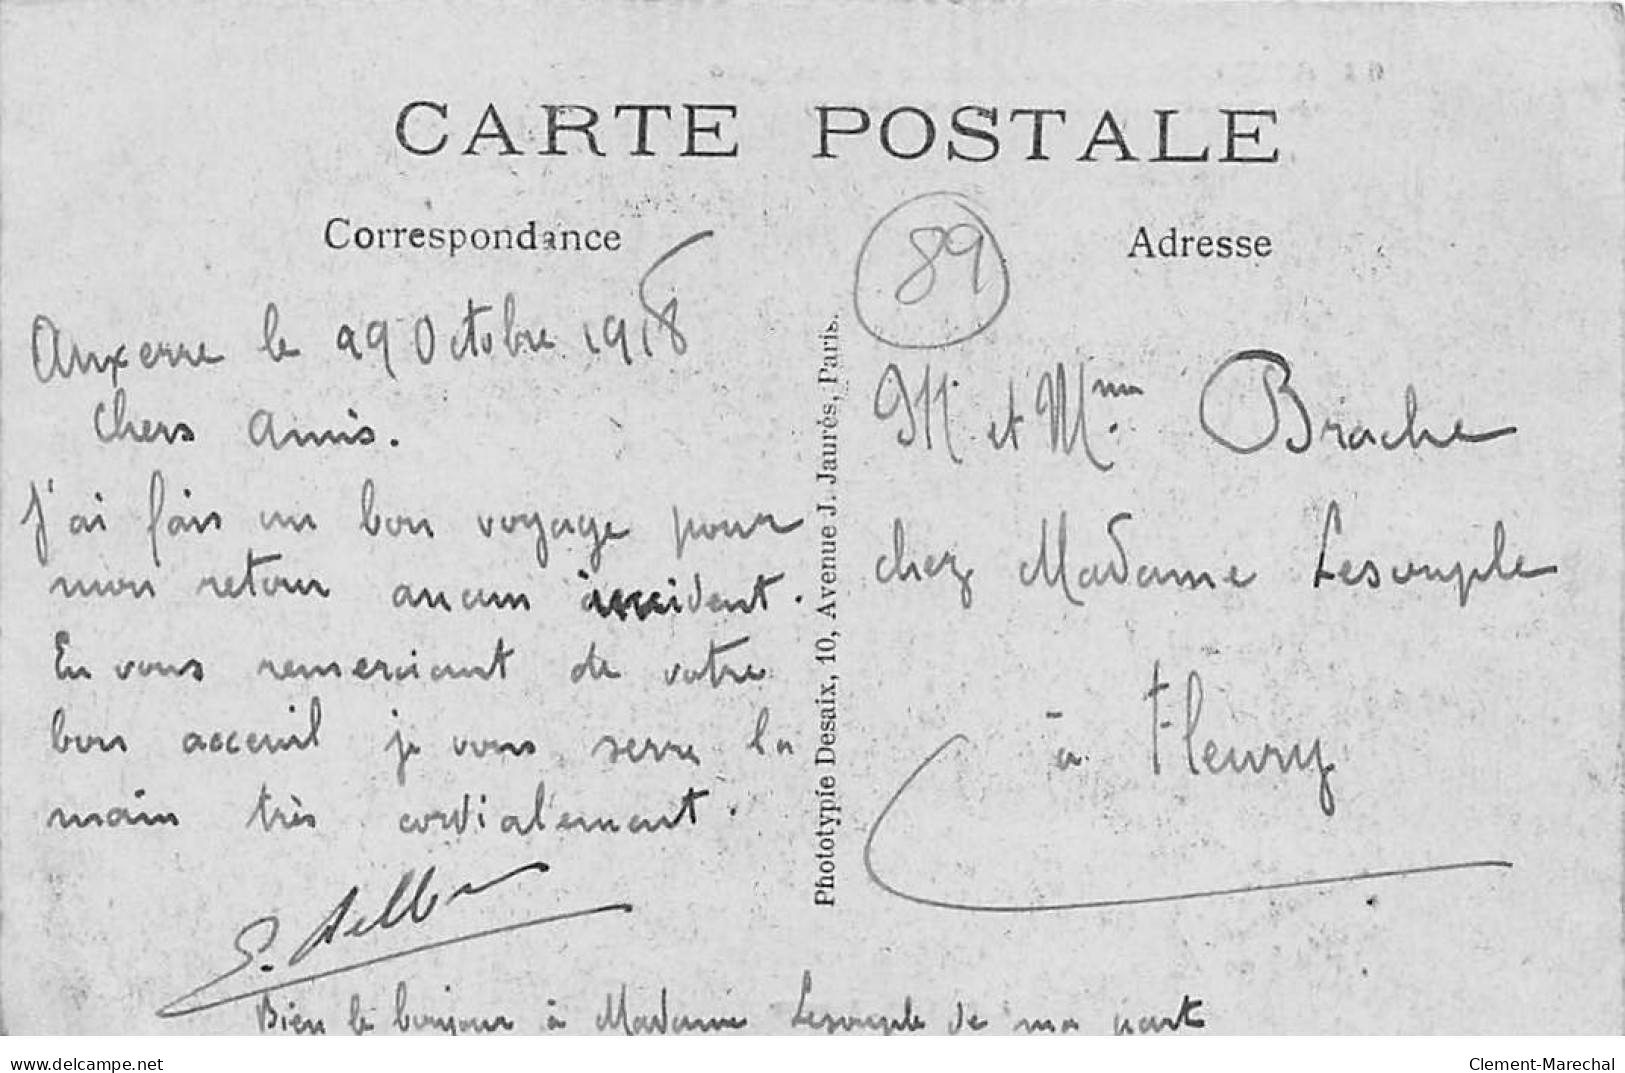 CARTE POSTALE
Correspondance
Adresse
89
Auxerre le 29 Octobre 1918
Chers Amis.
J'ai fais un bon voyage pour
mon retour aucun accident.
En vous remerciant de votre
bon acceuil je vous serre la
main très cordialement.
Bien le bonjour à Madame Lesouple de ma part
Phototypie Desaix, 10, Avenue J. Jaurès, Paris.
M. et Mme Brache
chez Madame Lesouple
à Fleury
delcampe.net
Clement-Marechal